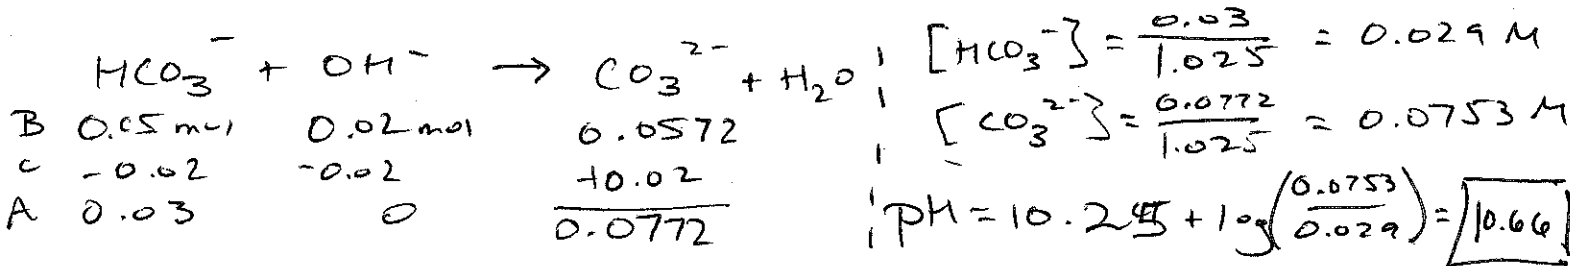 HCO₃⁻ + OH⁻ → CO₃²⁻ + H₂O
B 0.05 mol 0.02 mol 0.0572
C -0.02 -0.02 +0.02
A 0.03 0 0.0772
[HCO₃⁻] = 0.03/1.025 = 0.029 M
[CO₃²⁻] = 0.0772/1.025 = 0.0753 M
pH = 10.25 + log(0.0753/0.029) = 10.66